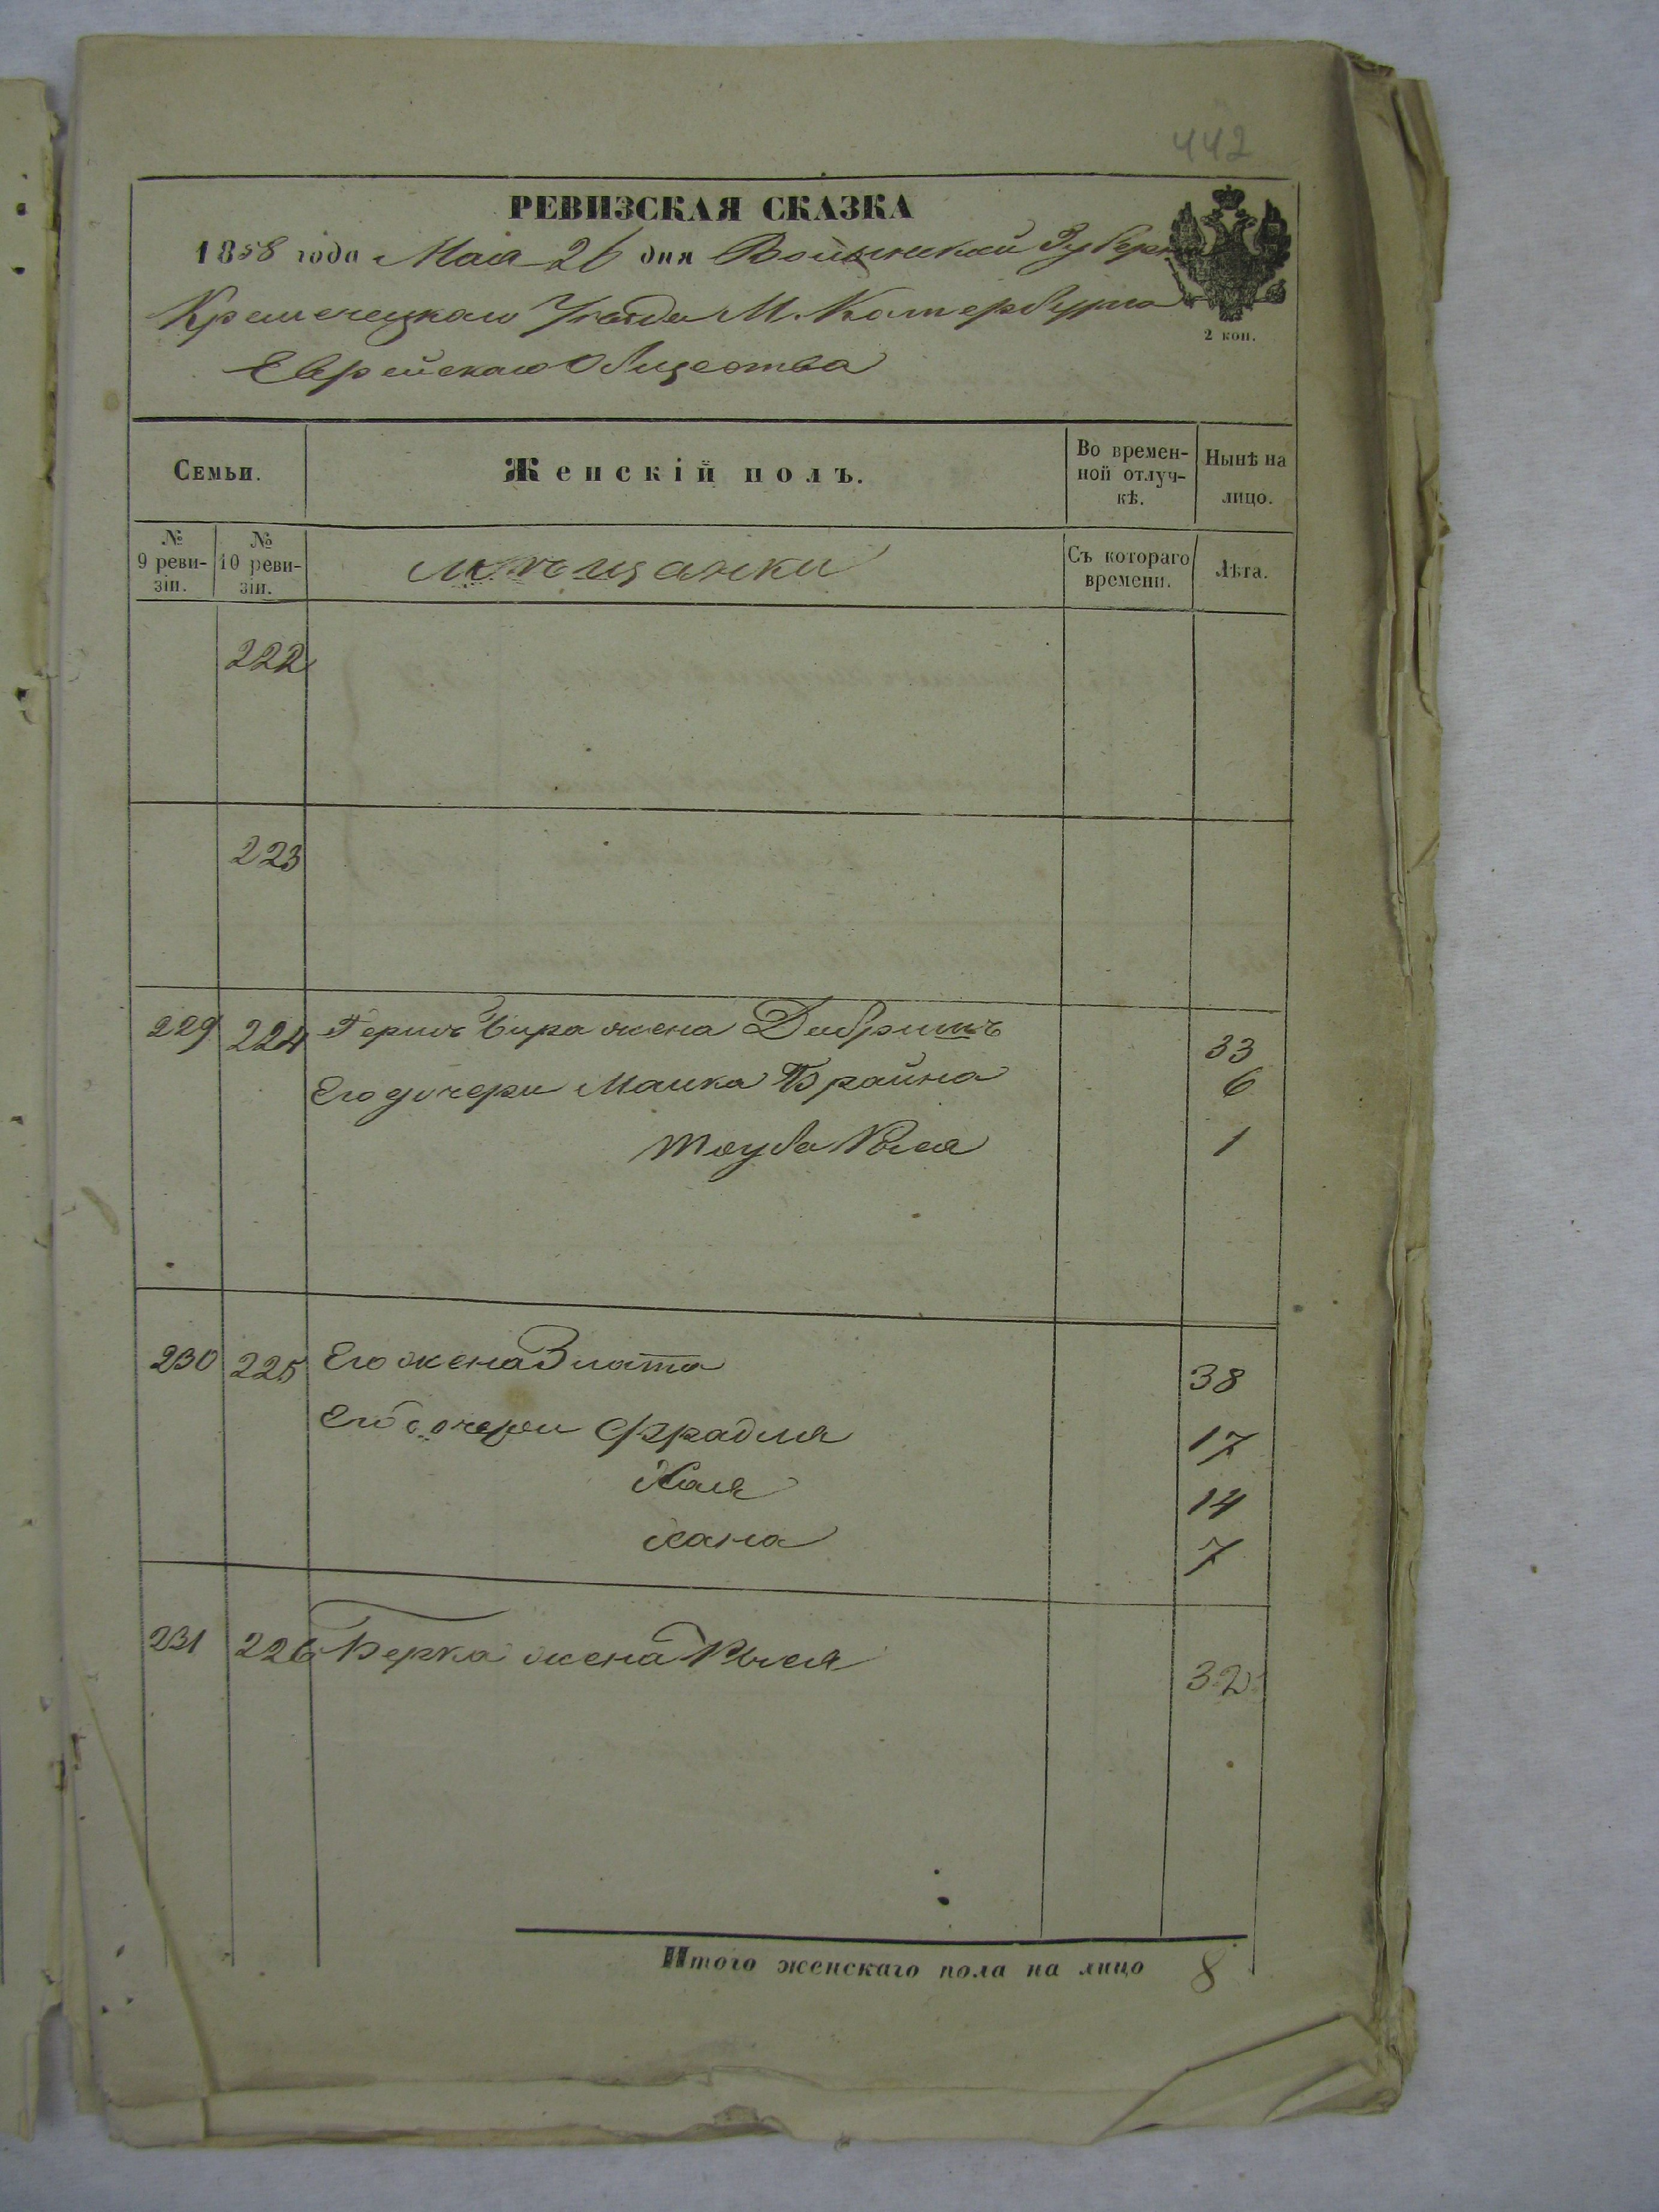 442
РЕВИЗСКАЯ СКАЗКА
1858 года Мая 26 дня Волынской Губерніи
Кременецкаго Уѣзда М. Катербурга
2 коп.
Еврейскаго Общества
Семьи.
Женскій полъ.
Во времен-
ной отлуч-
кѣ.
Нынѣ на
лицо.
№
9 реви-
зіи.
№
10 реви-
зіи.
мѣщанки
Съ котораго
времени.
Лѣта.
222
223
229 224 жена 33
Его дочери Малка Брайна 6
Тауба Рыся 1
230 225 Его жена Злата 38
Его дочери Фрадля 17
Хая 14
Хана 7
231 226 Берка жена Рыся 32
Итого женскаго пола на лицо 8